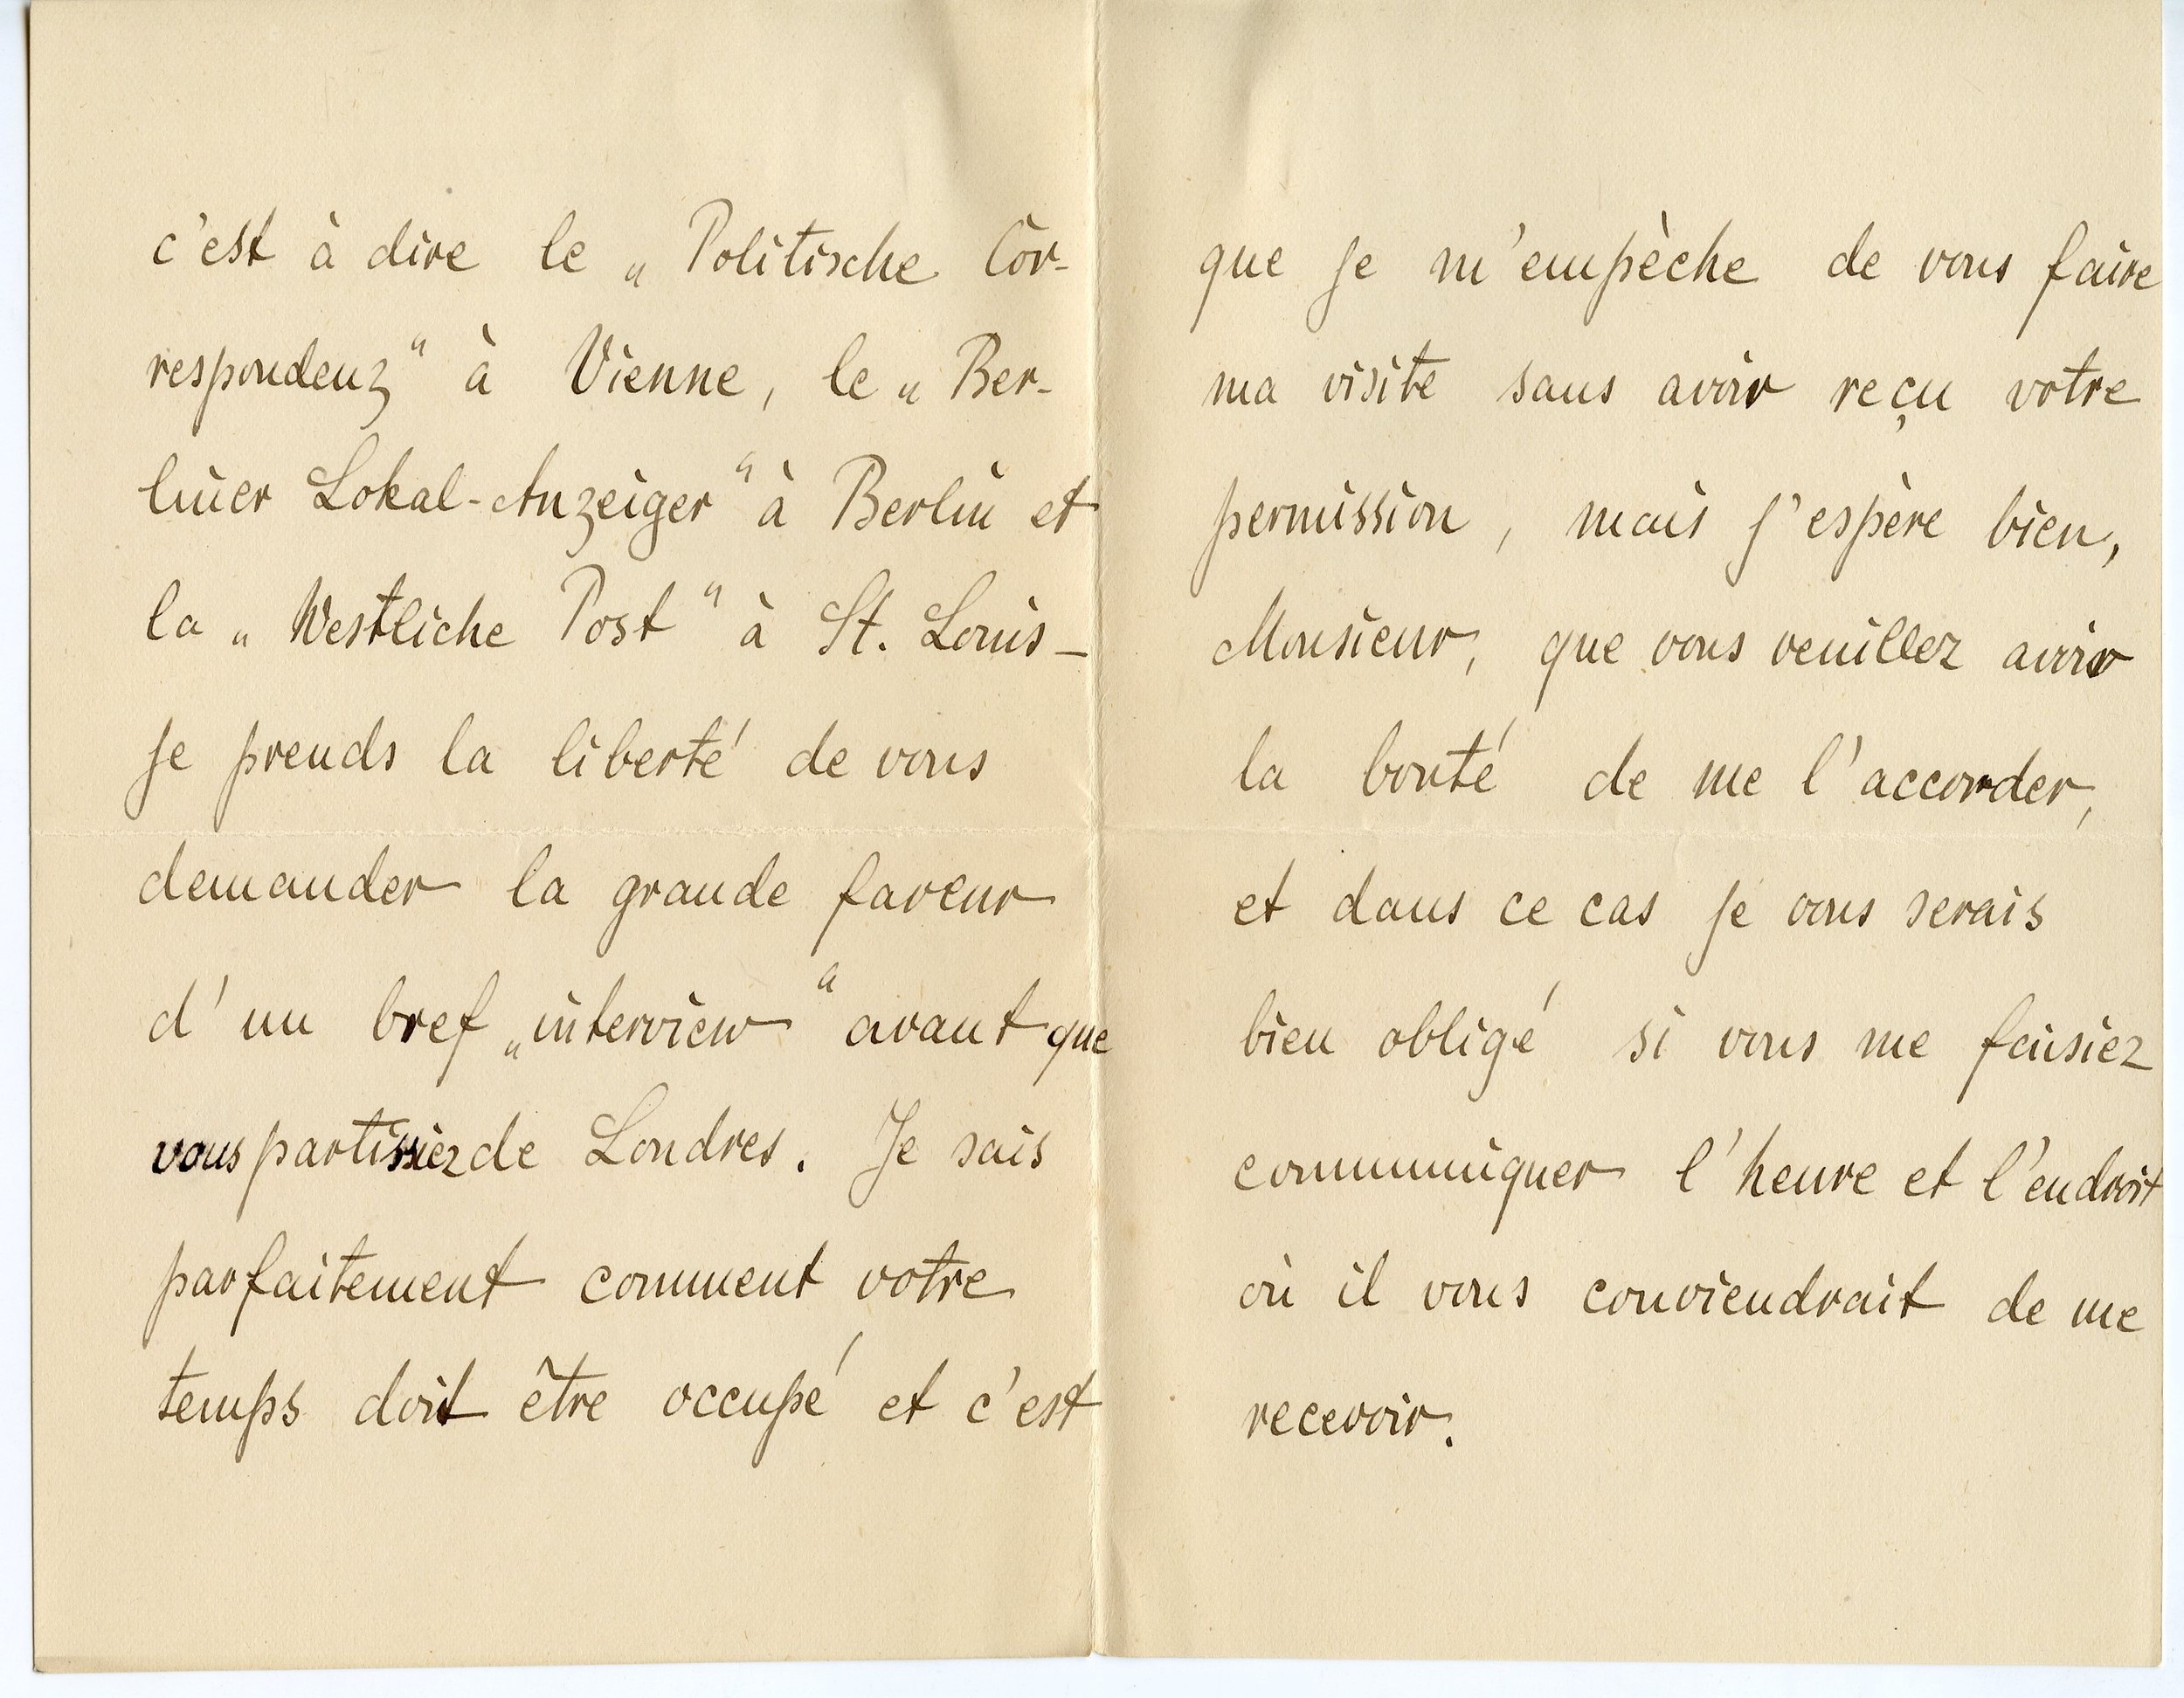 c'est à dire le „Politische Cor-
respondenz“ à Vienne, le „Ber-
liner Lokal-Anzeiger“ à Berlin et
la „Westliche Post“ à St. Louis_
je prends la liberté de vous
demander la grande faveur
d'un bref „interview“ avant que
vous partissiez de Londres. Je sais
parfaitement comment votre
temps doit être occupé et c'est
que je m'empèche de vous faire
ma visite sans avoir reçu votre
permission, mais j'espère bien,
Monsieur, que vous veuillez avoir
la bonté de me l'accorder,
et dans ce cas je vous serais
bien obligé si vous me faisiez
communiquer l'heure et l'endroit
où il vous conviendrait de me
recevoir.